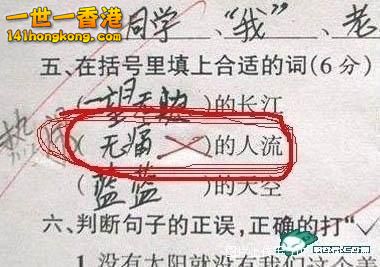 一世一香港
141hongkong.com
同学 、“我” 、老
五、在括号里填上合适的词(6分)
(一望无
)的长江
热闹
(无痛)的人流
(蓝蓝)的天空
六、判断句子的正误,正确的打“✓
1.没有太阳就没有我们这个美